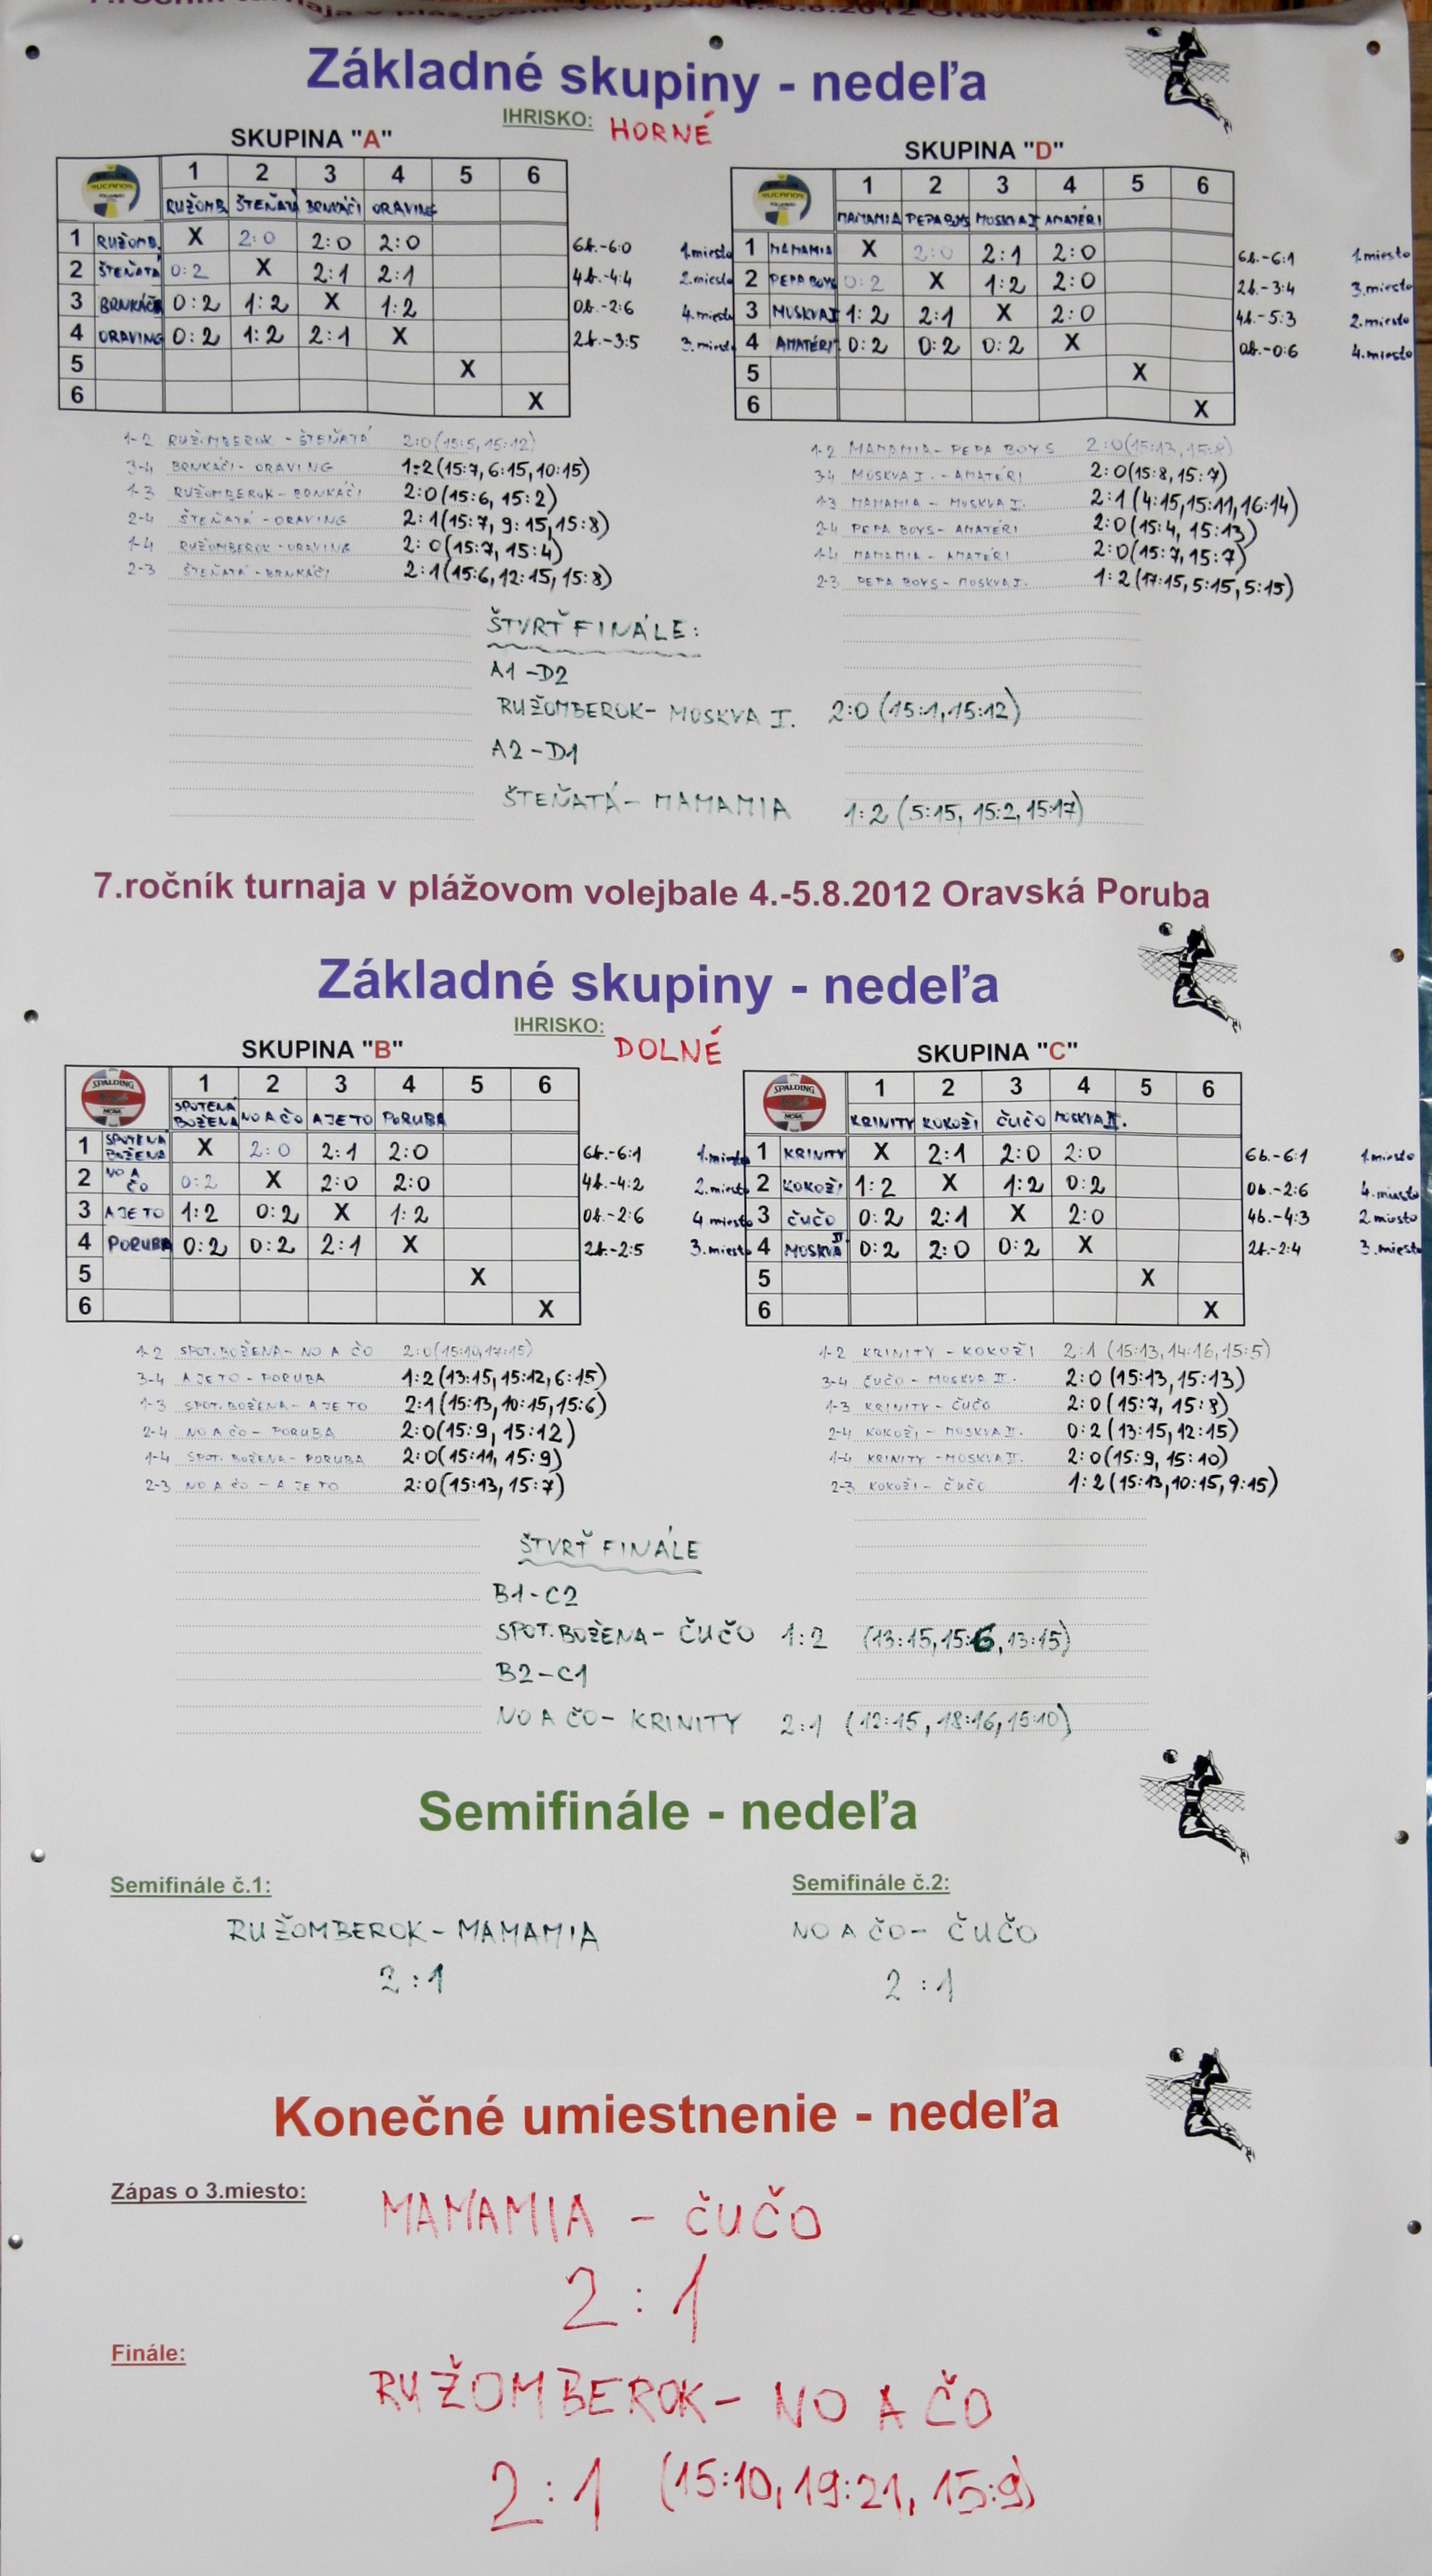 7.ročník turnaja v plážovom volejbale 4.-5.8.2012 Oravská Poruba
Základné skupiny - nedeľa
IHRISKO: HORNÉ
SKUPINA "A"
1 2 3 4 5 6
RUŽOMB. ŠTEŇATÁ BRNKÁČI ORAVING
1 RUŽOMB. X 2:0 2:0 2:0 6b.-6:0 1.miesto
2 ŠTEŇATÁ 0:2 X 2:1 2:1 4b.-4:4 2.miesto
3 BRNKÁČI 0:2 1:2 X 1:2 0b.-2:6 4.miesto
4 ORAVING 0:2 1:2 2:1 X 2b.-3:5 3.miesto
5 X
6 X
1-2 RUŽOMBEROK - ŠTEŇATÁ 2:0(15:5,15:12)
3-4 BRNKÁČI-ORAVING 1:2(15:7,6:15,10:15)
1-3 RUŽOMBEROK-BRNKÁČI 2:0(15:6, 15:2)
2-4 ŠTEŇATÁ-ORAVING 2:1(15:7, 9:15,15:8)
1-4 RUŽOMBEROK-ORAVING 2:0(15:7, 15:4)
2-3 ŠTEŇATÁ-BRNKÁČI 2:1(15:6,12:15, 15:8)
SKUPINA "D"
1 2 3 4 5 6
MAMAMIA PEPA BOYS MOSKVA I AMATÉRI
1 MAMAMIA X 2:0 2:1 2:0 6b.-6:1 1.miesto
2 PEPA BOYS 0:2 X 1:2 2:0 2b.-3:4 3.miesto
3 MOSKVA I 1:2 2:1 X 2:0 4b.-5:3 2.miesto
4 AMATÉRI 0:2 0:2 0:2 X 0b.-0:6 4.miesto
5 X
6 X
1-2 MAMAMIA-PEPA BOYS 2:0(15:13,15:8)
3-4 MOSKVA I.-AMATÉRI 2:0(15:8,15:7)
1-3 MAMAMIA - MOSKVA I. 2:1(4:15,15:11,16:14)
2-4 PEPA BOYS-AMATÉRI 2:0(15:4, 15:13)
1-4 MAMAMIA-AMATÉRI 2:0(15:7,15:7)
2-3 PEPA BOYS-MOSKVA I. 1:2(17:15,5:15,5:15)
ŠTVRŤFINÁLE:
A1-D2
RUŽOMBEROK- MOSKVA I. 2:0 (15:1,15:12)
A2-D1
ŠTEŇATÁ- MAMAMIA 1:2 (5:15, 15:2, 15:17)
7.ročník turnaja v plážovom volejbale 4.-5.8.2012 Oravská Poruba
Základné skupiny - nedeľa
IHRISKO: DOLNÉ
SKUPINA "B"
SPALDING
1 2 3 4 5 6
SPOTENÁ BOŽENA NO A ČO A JE TO PORUBA
1 SPOTENÁ BOŽENA X 2:0 2:1 2:0 6b.-6:1 1.miesto
2 NO A ČO 0:2 X 2:0 2:0 4b.-4:2 2.miesto
3 A JE TO 1:2 0:2 X 1:2 0b.-2:6 4.miesto
4 PORUBA 0:2 0:2 2:1 X 2b.-2:5 3.miesto
5 X
6 X
1-2 SPOT.BOŽENA- NO A ČO 2:0(15:10,17:15)
3-4 A JE TO-PORUBA 1:2(13:15,15:12,6:15)
1-3 SPOT.BOŽENA-A JE TO 2:1(15:13,10:15,15:6)
2-4 NO A ČO-PORUBA 2:0(15:9, 15:12)
1-4 SPOT.BOŽENA-PORUBA 2:0(15:11, 15:9)
2-3 NO A ČO-A JE TO 2:0(15:13, 15:7)
SKUPINA "C"
SPALDING
1 2 3 4 5 6
KRINITY KOKOŽI ČUČO MOSKVA II.
1 KRINITY X 2:1 2:0 2:0 6b.-6:1 1.miesto
2 KOKOŽI 1:2 X 1:2 0:2 0b.-2:6 4.miesto
3 ČUČO 0:2 2:1 X 2:0 4b.-4:3 2.miesto
4 MOSKVA II 0:2 2:0 0:2 X 2b.-2:4 3.miesto
5 X
6 X
1-2 KRINITY-KOKOŽI 2:1 (15:13,14:16,15:5)
3-4 ČUČO-MOSKVA II. 2:0 (15:13,15:13)
1-3 KRINITY-ČUČO 2:0(15:7, 15:8)
2-4 KOKOŽI-MOSKVA II. 0:2(13:15,12:15)
1-4 KRINITY-MOSKVA II. 2:0(15:9, 15:10)
2-3 KOKOŽI-ČUČO 1:2(15:13,10:15,9:15)
ŠTVRŤFINÁLE
B1-C2
SPOT.BOŽENA- ČUČO 1:2 (13:15,15:6,13:15)
B2-C1
NO A ČO- KRINITY 2:1 (12:15,18:16,15:10)
Semifinále - nedeľa
Semifinále č.1:
RUŽOMBEROK-MAMAMIA
2:1
Semifinále č.2:
NO A ČO- ČUČO
2:1
Konečné umiestnenie - nedeľa
Zápas o 3.miesto:
MAMAMIA - ČUČO
2:1
Finále:
RUŽOMBEROK- NO A ČO
2:1 (15:10,19:21, 15:9)